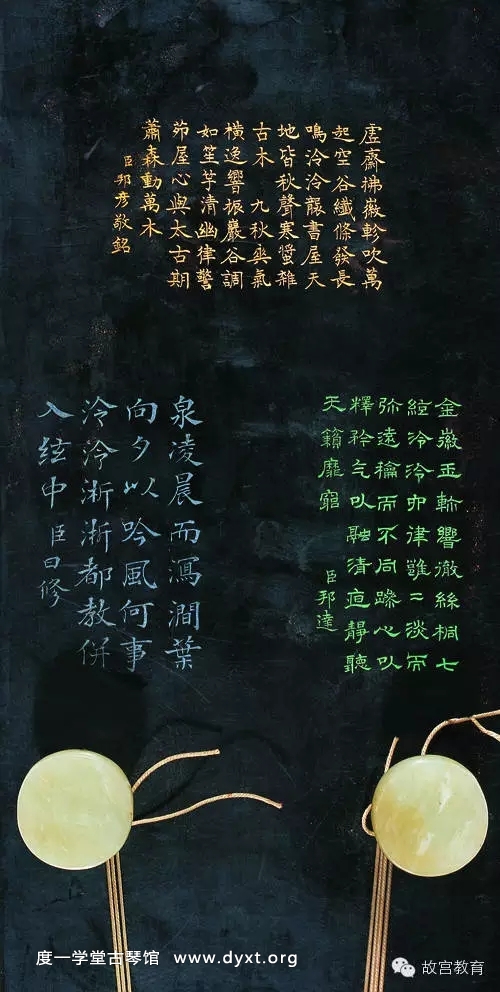 虛齋拂徽軫吹萬
起空谷纖條發長
鳴泠泠襲書屋天
地皆秋聲寒螿雜
古木 九秋爽氣
橫逸響振巖谷調
如笙竽清幽律警
茆屋心與太古期
蕭森動萬木
臣邦彥敬銘
金徽玉軫響徹絲桐七
絃泠泠中律雝二淡而
弥遠龢而不同躁心以
釋矜气以融清靜聽
天籟靡窮
臣邦達
泉凌晨而瀉澗葉
向夕以吟風何事
泠泠淅淅都教併
入絃中 臣曰修
度一学堂古琴馆 www.dyxt.org
故宫教育